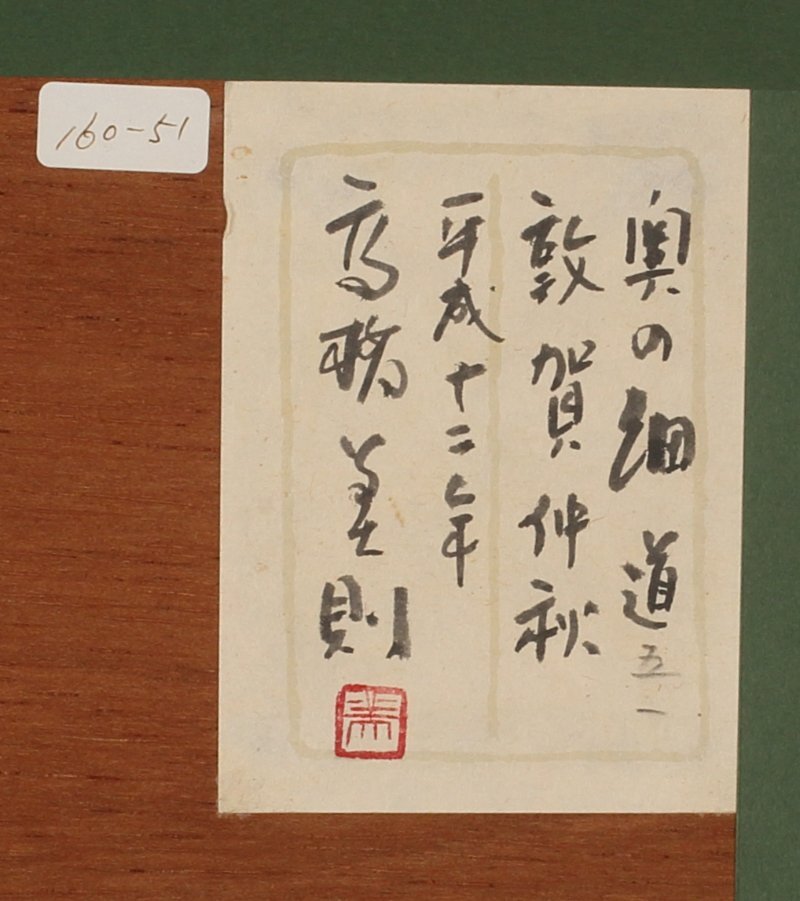 160-51
奥の細道 五一
敦賀仲秋
平成十二年
高橋美則
美